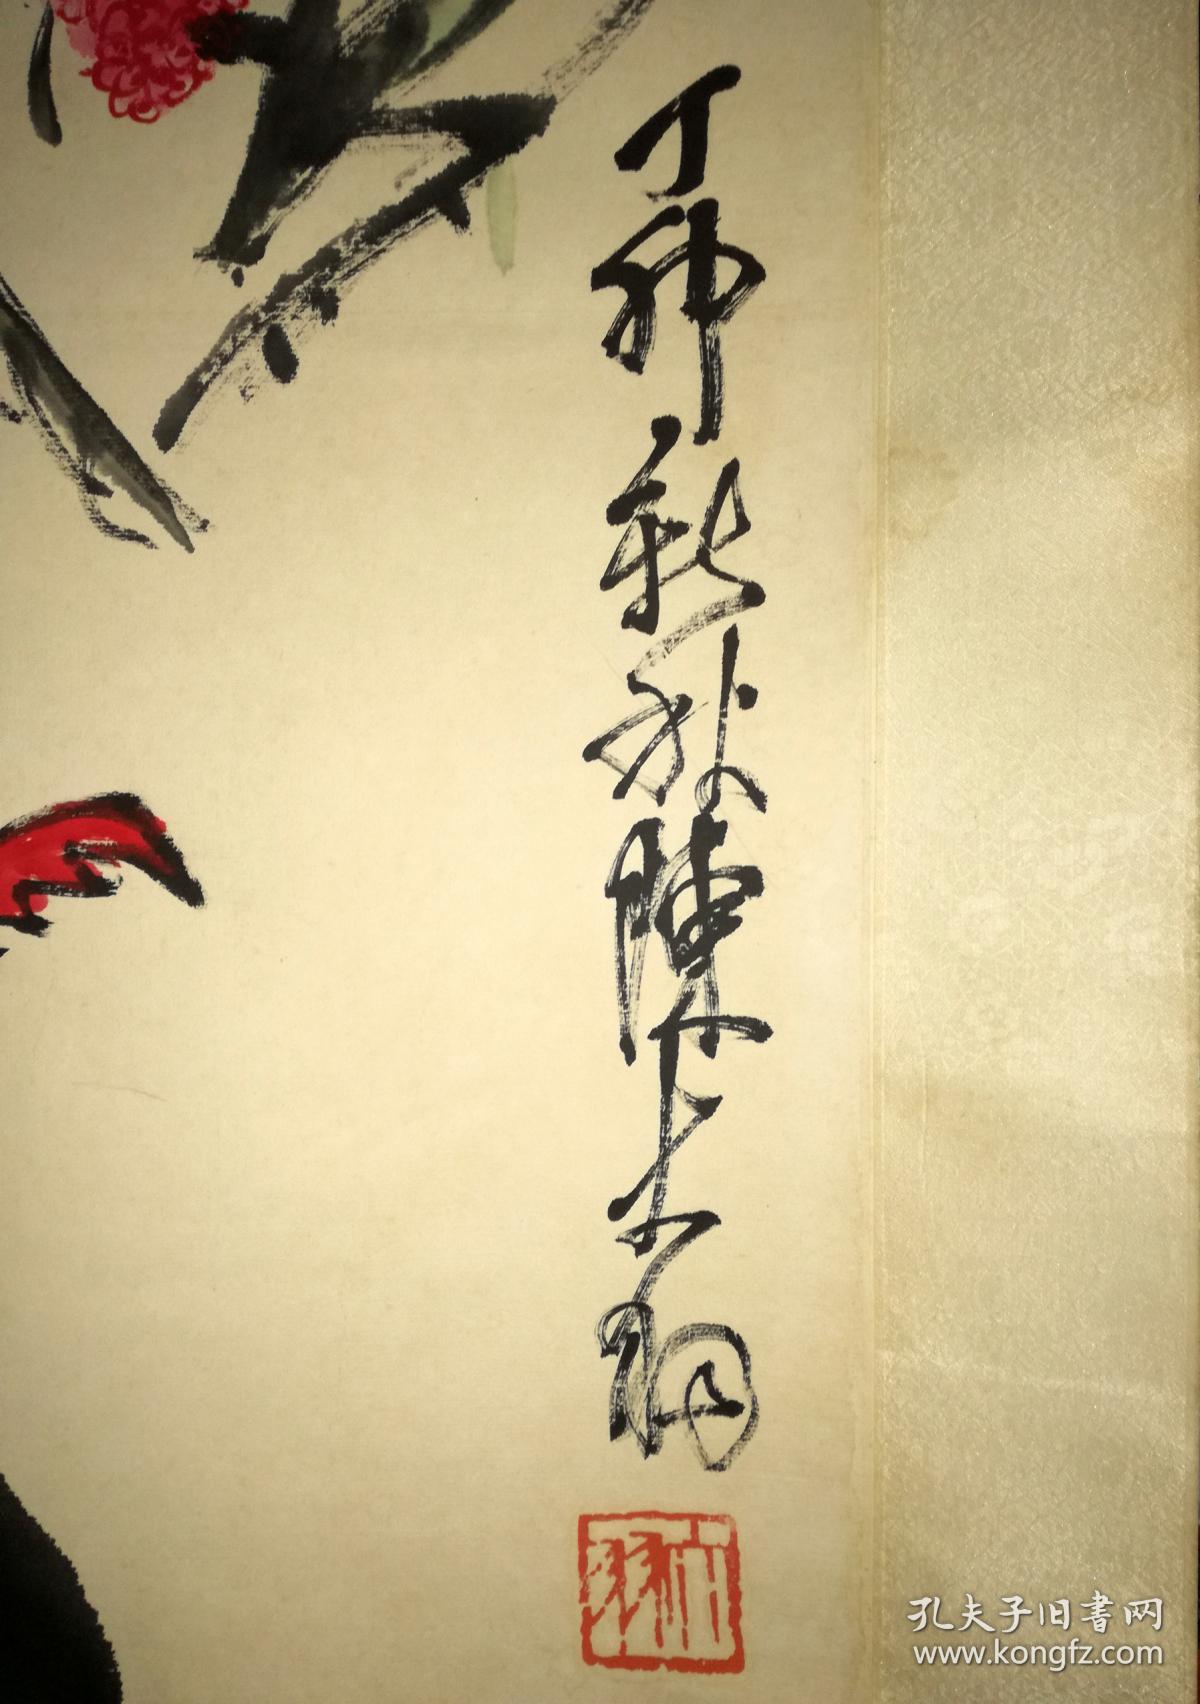 丁卯新秋陳大羽
大羽
孔夫子旧書网
www.kongfz.com